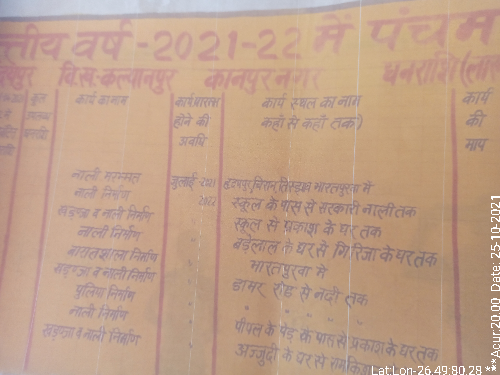 त्तीय वर्ष -2021-22 में पंचम
वि.ख.-कल्यानपुर कानपुर नगर धनराशि
कुल कार्य का नाम कार्य प्रारम्भ कार्य स्थल का नाम कार्य
होने की कहाँ से कहाँ तक) की
अवधि माप
नाली मरम्मत जुलाई 2021 भारतपुरवा में
नाली निर्माण 2022 स्कूल के पास से सरकारी नाली तक
खड़ण्जा व नाली निर्माण स्कूल से प्रकाश के घर तक
नाली निर्माण बड़ेलाल के घर से गिरिजा के घर तक
बारातशाला निर्माण भारतपुरवा में
खड़ण्जा व नाली निर्माण डामर रोड से नदी तक
पुलिया निर्माण " " " "
नाली निर्माण पीपल के पेड़ के पास से प्रकाश के घर तक
खड़ण्जा व नाली निर्माण के घर से
Lat Lon-26.49:80.28 *** Acur:20.00 Date: 25-10-2021